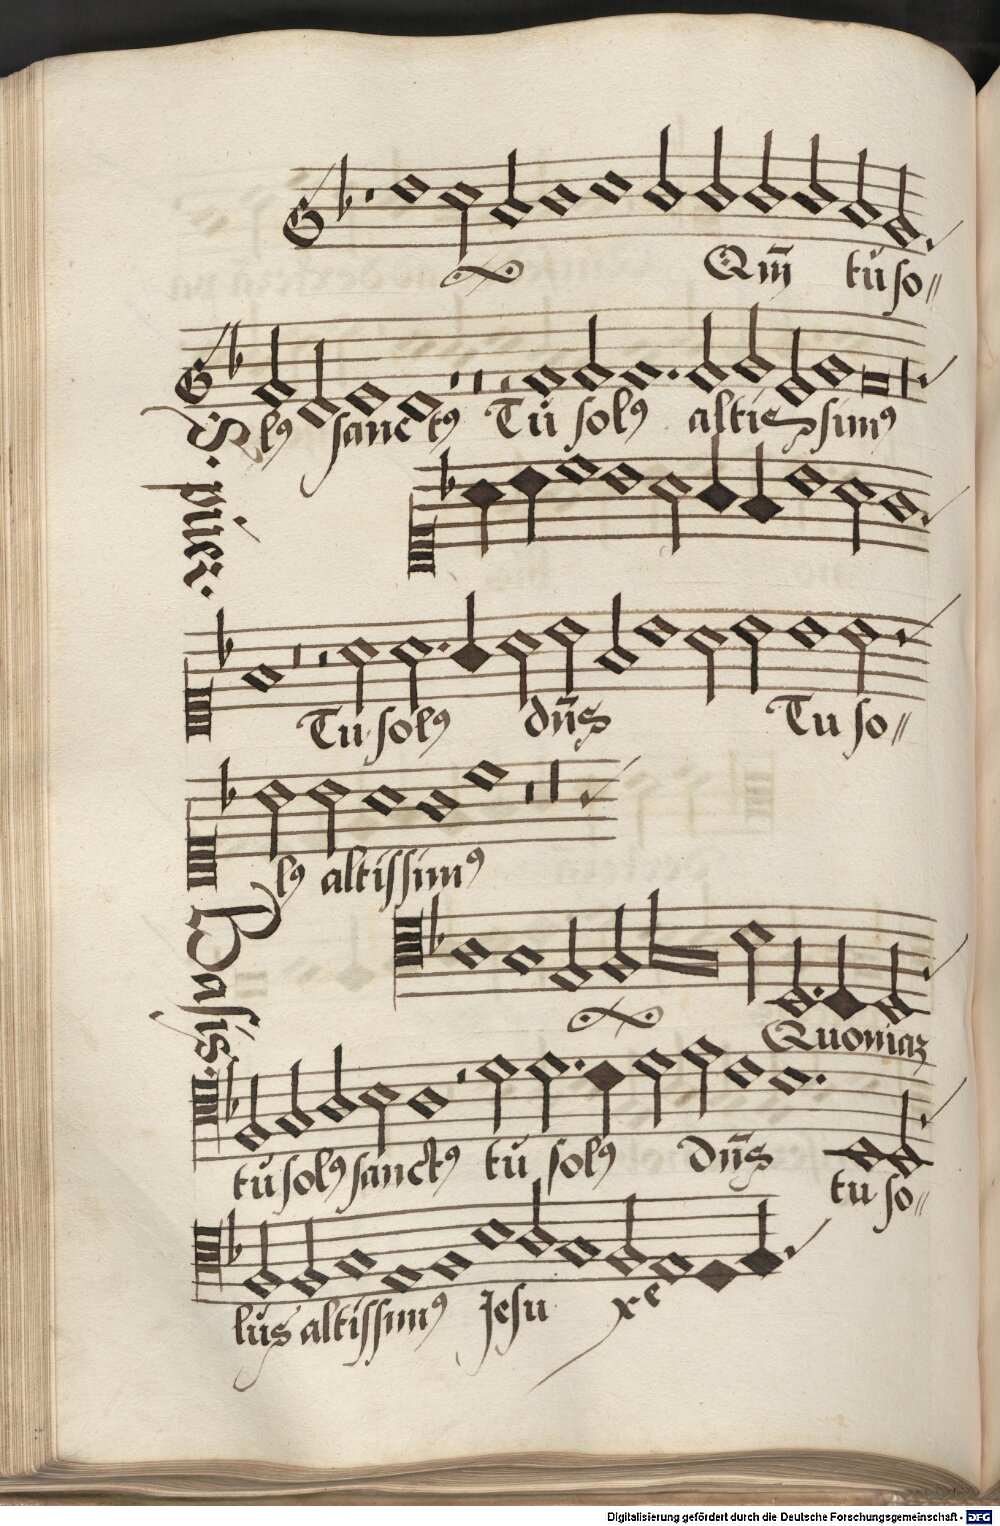 Qm̄ tu so//
S. puer.
l9 sanct9 Tu sol9 altissim9
Tu sol9 dn̄s Tu so//
l9 altissim9
Basis.
Quoniaz
tu sol9 sanct9 tu sol9 dn̄s tu so//
lus altissim9 Jesu xe
Digitalisierung gefördert durch die Deutsche Forschungsgemeinschaft - DFG